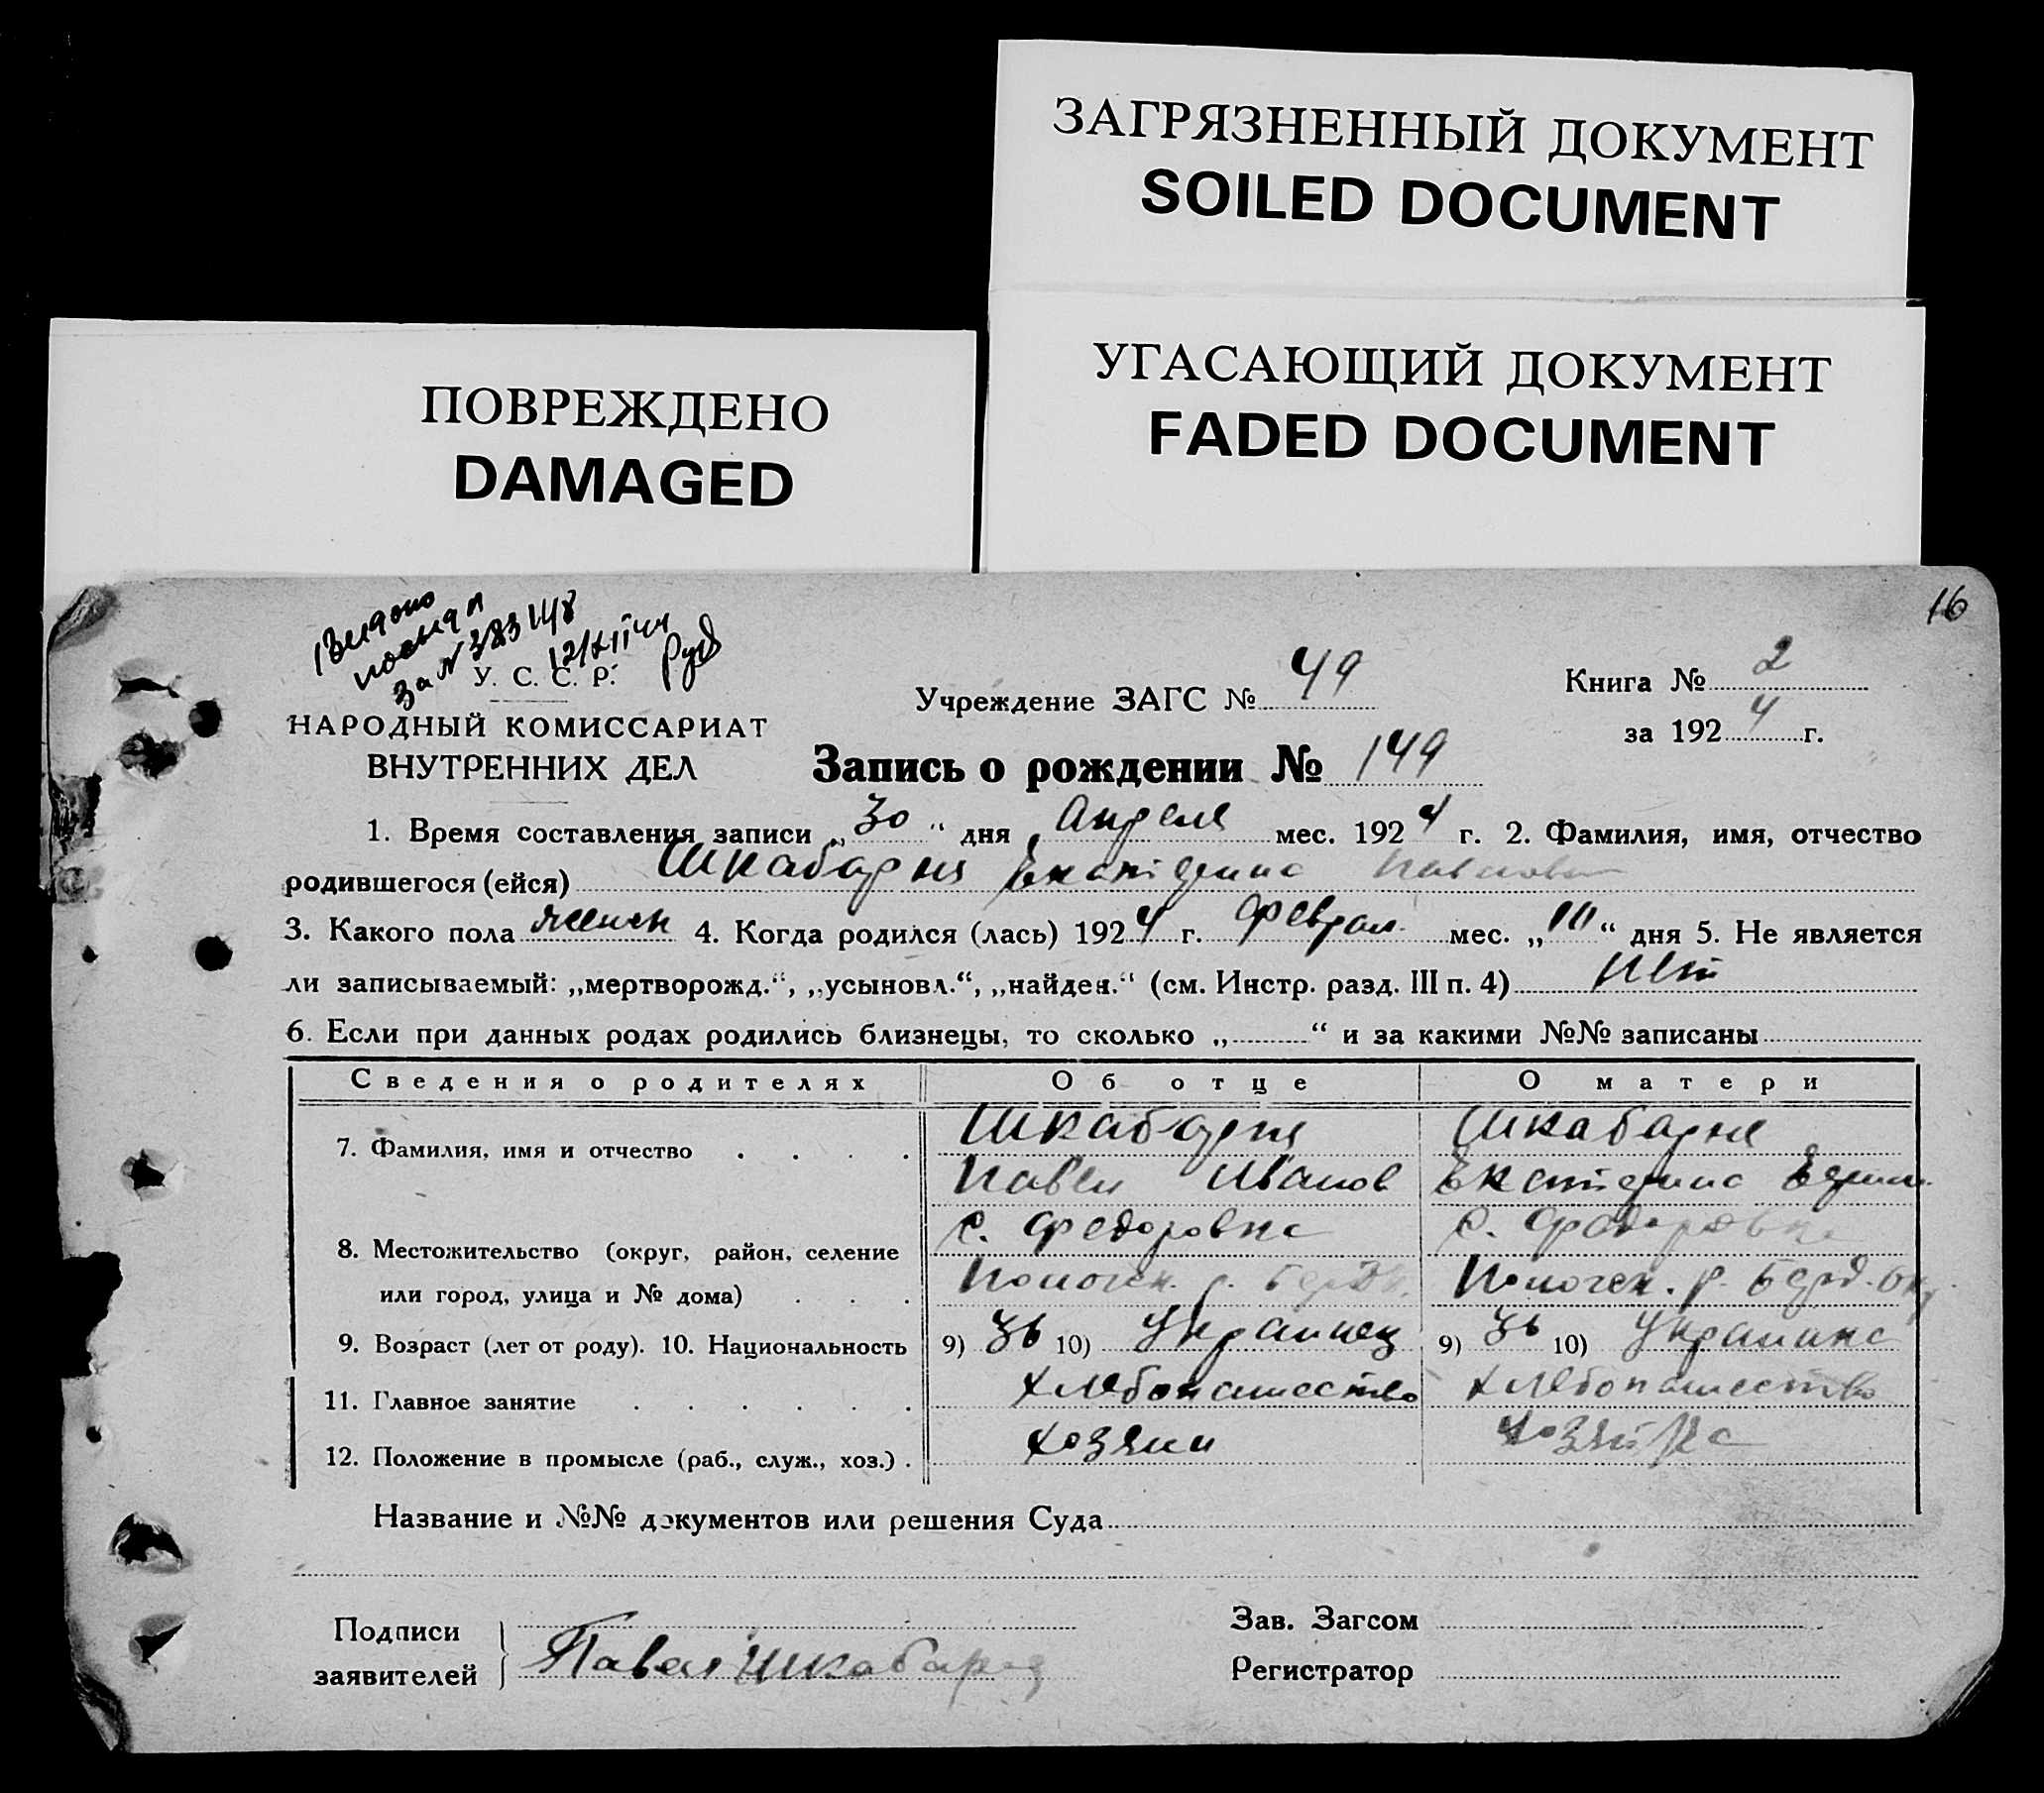 ЗАГРЯЗНЕННЫЙ ДОКУМЕНТ
SOILED DOCUMENT
УГАСАЮЩИЙ ДОКУМЕНТ
FADED DOCUMENT
ПОВРЕЖДЕНО
DAMAGED
16
за №
У. С. С. Р.
НАРОДНЫЙ КОМИССАРИАТ
ВНУТРЕННИХ ДЕЛ
Учреждение ЗАГС № 49
Книга № 2
за 1924 г.
Запись о рождении № 149
1. Время составления записи „30“ дня Апреля мес. 1924 г. 2. Фамилия, имя, отчество
родившегося (ейся) Шкабарня Екатерина Павловн
3. Какого пола женск 4. Когда родился (лась) 1924 г. Феврал. мес. „10“ дня 5. Не является
ли записываемый: „мертворожд.“, „усыновл.“, „найден.“ (см. Инстр. разд. III п. 4) Нет
6. Если при данных родах родились близнецы, то сколько „ “ и за какими №№ записаны
Сведения о родителях Об отце О матери
7. Фамилия, имя и отчество Шкабарня Шкабарня
Павел Иванов Екатерина
8. Местожительство (округ, район, селение с. Федоровка с. Федоровка
или город, улица и № дома) Пологск. р. Бердян. Пологск. р. Берд. Окр.
9. Возраст (лет от роду). 10. Национальность 9) 36 10) Украинец 9) 36 10) Украинка
11. Главное занятие Хлебопашество Хлебопашество
12. Положение в промысле (раб., служ., хоз.) Хозяин Хозяйка
Название и №№ документов или решения Суда
Подписи
заявителей Павел Шкабарня
Зав. Загсом
Регистратор